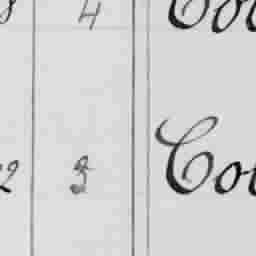 8 4 Co
2 3 Co